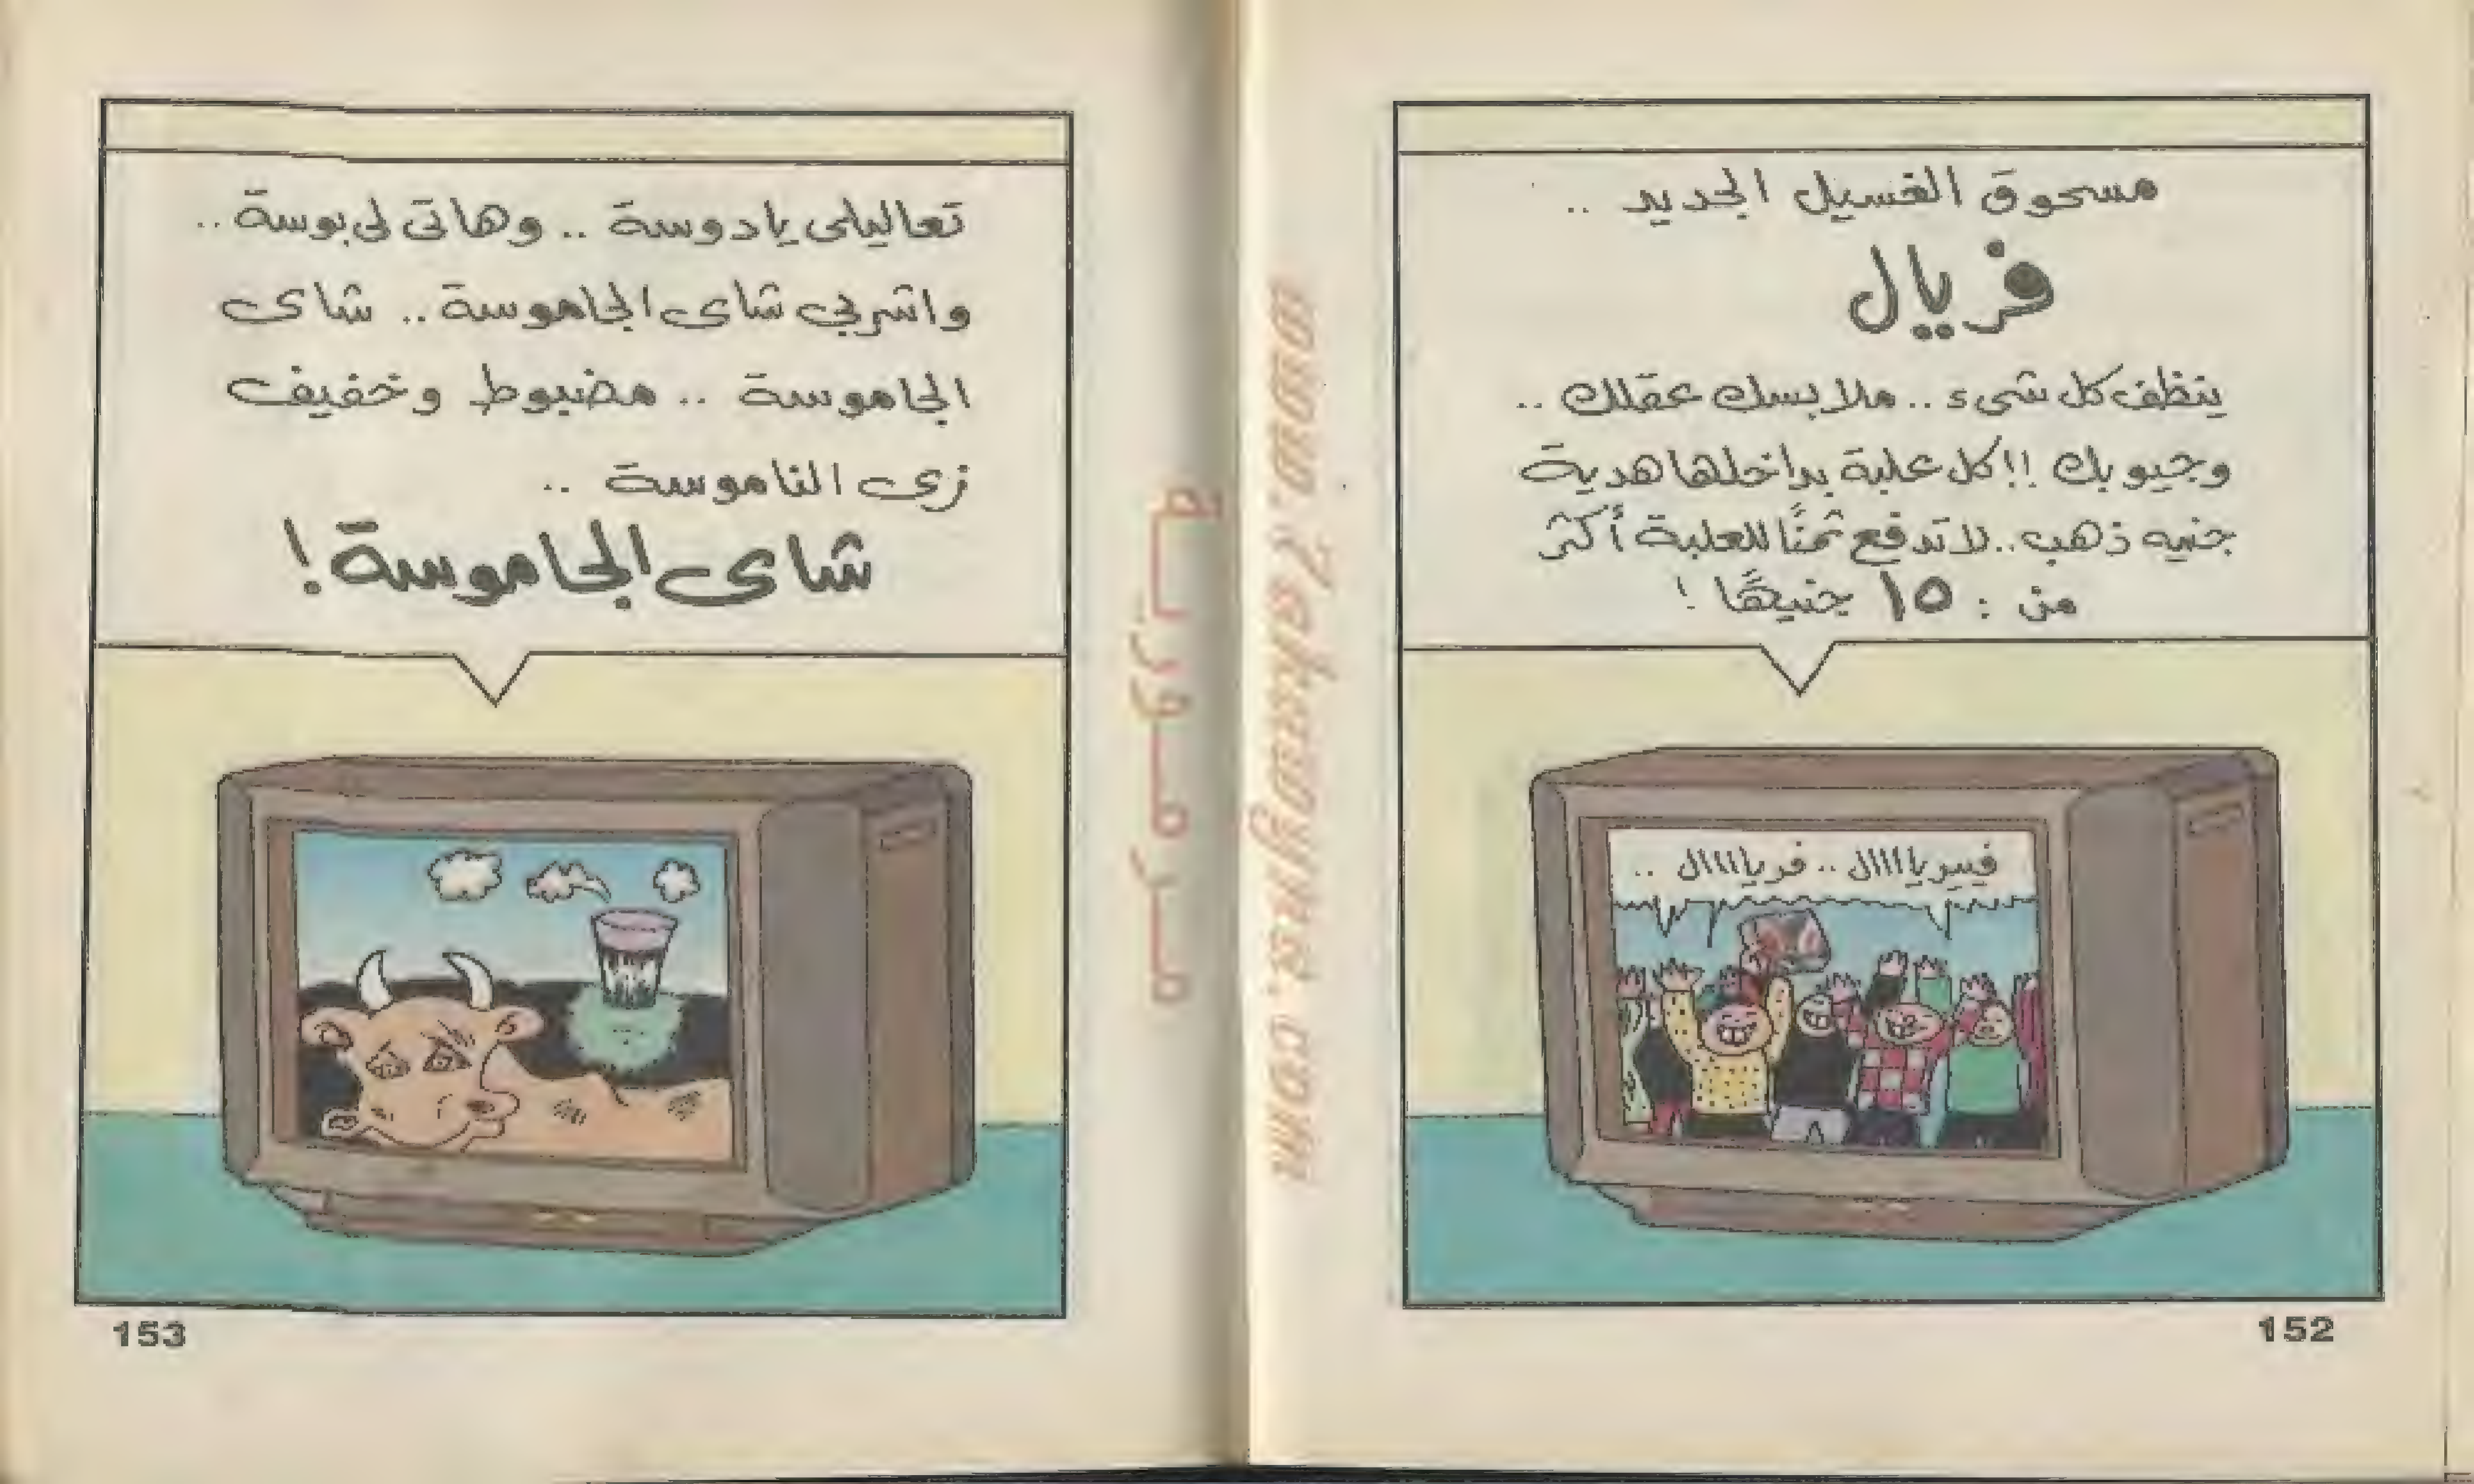 مسحوق الغسيل الجديد ..
فريال
ينظف كل شىء .. ملابسك عقلك ..
وجيوبك !! كل علبة بداخلها هدية
جنيه ذهب .. لا تدفع ثمنًا للعلبة أكثر
من : ١٥ جنيهًا !
فييريااااال .. فريااااال ..
152
تعاليلى يا دوسة .. وهاتى لى بوسة ..
واشربى شاى الجاموسة .. شاى
الجاموسة .. مضبوط وخفيف
زى الناموسة ..
شاى الجاموسة !
153
مرمورية
www.7akawyna.com